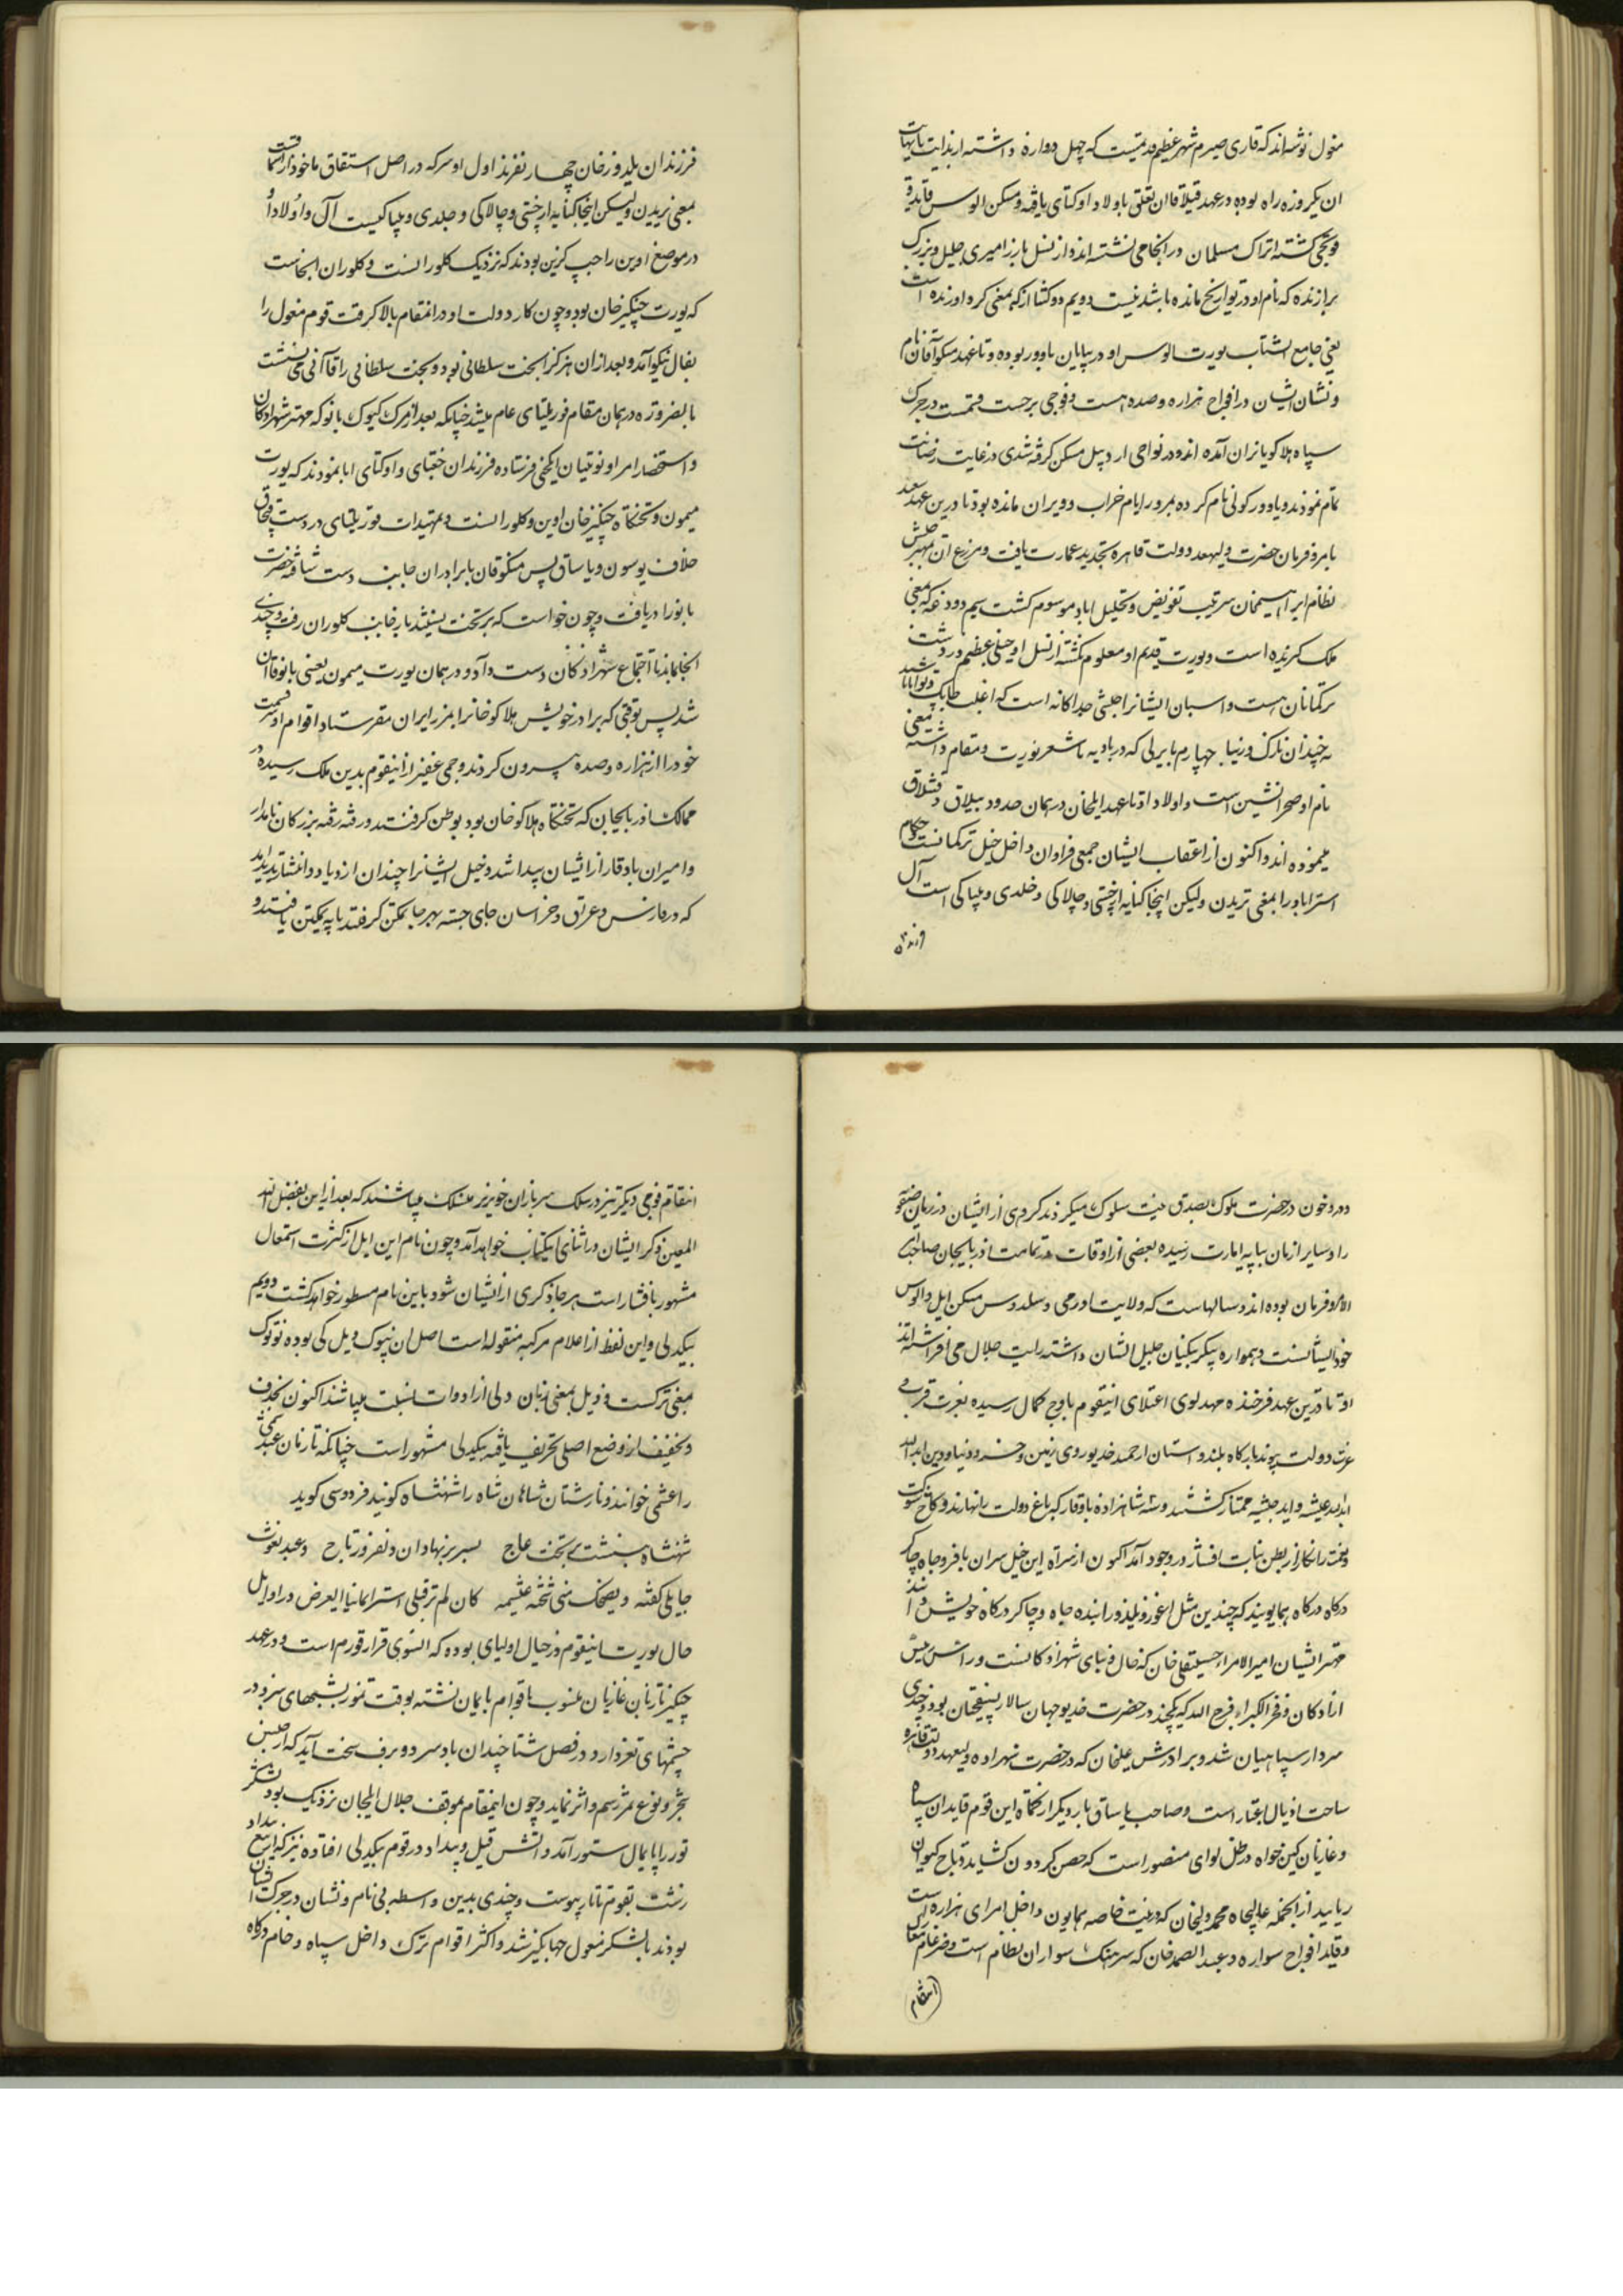 مغول نوشته‌اند که قاری صیرم شهر عظیم قدیمست که چهل دروازه داشته از بدایت تا نهایت
ان یکروزه راه بوده در عهد قیلاقاان تعلق باولاد اوکتای یافته و مسکن الوس قایدو
قویچی گشته اتراک مسلمان در انجا می نشسته اند و از نسل یازر امیری جلیل و بزرگ
برازنده که نام او در تواریخ مانده باشد نیست دویم دوکتا ازکه بمعنی کرد اورنده است
یعنی جامع الشتاب یورت الوس او در بیابان یاوور بوده و تا عهد منکوقاآن نام
و نشان ایشان در افواج هزاره و صده هست و فوجی بر حسب قسمت در جرک
سپاه هلاکو بایران آمده اند و در نواحی اردبیل مسکن گرفته شدی در غایت رضانت
تمام نمودند و یاوور کولی نام کرده بمرور ایام خراب و ویران مانده بود تا درین عهد سعد
بامر و فرمان حضرت ولیعهد دولت قاهره تجدید عمارت یافت و مزرع آن بمهین جلیش
نظام ابراهیمخان سرتیپ تفویض و بخلیل اباد موسوم گشت سیم دودرغه که بمعنی
ملک گیرنده است و یورت قدیم او معلوم نگشته از نسل او خیلی عظیم در دشت
ترکمانان هست و اسبان ایشانرا جلشی جداکانه است که اغلب چابک و توانا باشند
نه چندان نازک و زیبا چهارم بایرلی که در بادیه باشعر یورت و مقام داشته بمعنی
نام او صحرانشین است و اولاد او تا عهد ایلخان در همان حدود ییلاق و قشلاق
میموده اند و اکنون از اعقاب ایشان جمعی فراوان داخل خیل ترکمانست حکام
استراباد را بمعنی تریدن ولیکن اینجا کنایه از چستی و چالاکی و جلدی و بیباکی است آل
فرزندان
فرزندان یلدوزخان چهار نفرند اول اوسرکه در اصل اشتقاق ماخوذ از اسماقست
بمعنی بریدن ولیکن اینجا کنایه از چستی و چالاکی و جلدی و بیباکیست آل و اولاد او
در موضع اوین راحب کزین بودند که نزدیک کلورانست و کلوران انجاست
که یورت چنکیزخان بود و چون کار دولت او در انمقام بالا گرفت قوم مغول را
بفال نیکو آمد و بعد از ان هرکز ابخت سلطانی بود و بتخت سلطانی را قاآنی می نشست
بالضروره در همان مقام قوریلتای عام میشد چنانکه بعد از مرک کیوک باتو که مهتر شهزادگان
و استحضار امرا و نوئیان ایلچی فرستاده فرزندان جغتای و اوکتای ابا نمودند که یورت
میمون و تختکاه چنکیزخان اوین و کلورانست و تمهیدات قوریلتای در دشت قبچاق
خلاف یوسون و یاساق پس منکوقاان با برادران جانب دست شتافته حضرت
باتو را دریافت و چون خواست که بر تخت بنشیند بار بجانب کلوران رفت و چندی
انجا بماند تا اجتماع شهزادکان دست داد و در همان یورت میمون یعنی باتوقاان
شد پس بوقتی که برادر خویش هلاکوخانرا بمرز ایران میفرستاد اقوام او قسمت
خود را از هزاره و صده بیرون کردند و جمعی غفیر از اینقوم بدین ملک رسیده در
ممالک اذربایجان که تختکاه هلاکوخان بود یوطن گرفتند و رفته رفته بزرکان نامدار
و امیران با وقار از ایشان پیدا شد و خیل ایشانرا چندان ازدیاد و انتشار پدید آمد
که در فارس و عراق و خراسان جای جسته بهر جا تمکن گرفتند پایه تمکین یافتند و
در و خون در حضرت ملوک بصدق نیت سلوک میکردند کردی از ایشان در زمان صفویه
را و سایر ازمان بپایه امارت رسیده بعضی از اوقات در تمامت اذربایجان صاحب
الامر و فرمان بوده اند و سالهاست که ولایت اورمی و سلدوس مسکن ایل و الوس
خود ایشانست و همواره بیکلربیکیان جلیل الشان داشته رایت جلال می افراشته اند
او تا درین عهد فرخنده مهد لوی اعتلای اینقوم باوج کمال رسیده بعزت قرب
عزت دولت پیوند بارکاه بلند و استان ارجمند خدیو روی زمین و خسرو دنیا و دین ابدالله
ابد عیشه و اید جیشه ممتاز کشتند و سه شاهزاده باوقار که باغ دولت را نهارند و کاخ شوکت
و بخت را نکار از بطن بنات افشار در وجود آمد اکنون از سراة این خیل سران با فر و جاه چاکر
درکاه درکاه همایونند که چندین مثل اغوز و یلدوز را بنده جاه و چاکر درکاه خویش داند
مهتر ایشان امیر الامراء حسینقلی خان که خال و نیای شهزادکانست و راس رئیس
ازادکان و فخر الکبراء فرج الله که یکچند در حضرت خدیو جهان سالار پیشخان بود و چندی
سردار سپاهیان شد و برادرش علیخان که در حضرت شهزاده ولیعهد دولت قاهره
ساحت اذیال اعتبار است و صاحب یاساق بار دیکر از نکتاه این قوم قایدان سپاه
و غازیان کین خواه در ظل لوای منصور است که حصن کردون کشاید و تاج کیوان
رباید از انجمله عالیجاه محمد ولیخان که در نیت خاصه همایون داخل امرای هزاره است
و قاید افواج سواره و عبد الصمد خان که سرهنک سواران نظام است و ضرغام معارک
انتقام
انتقام فوجی دیکر نیز در سلک سربازان خونریز منسلک میباشند که بعد از این بفضل الله
المعین ذکر ایشان در اثنای اینکتاب خواهد آمد و چون نام این ایل از کثرت استعمال
مشهور بافشار است هر جا ذکری از ایشان شود باین نام مسطور خواهد کشت دویم
بیکدلی و این لفظ از اعلام مرکبه منقوله است اصل ان بیوک دیل لی بوده بیوک
بمعنی بزرکست و دیل بمعنی زبان و لی از ادوات نسبت میباشد اکنون بحذف
و تخفیف از وضع اصلی تحریف یافته بیکدلی مشهور است چنانکه تازیان عبد شمس
را عبشمی خوانند و پارسیان شاهان شاه را شهنشاه کویند فردوسی کوید
شهنشاه بنشست بر تخت عاج بسر بر نهاد ان دلفروز تاج و عبد یغوث
جاهلی کفته و یضحک منی شیخة عبشمیه کان لم تر قبلی اسیرا یمانیا الغرض در اوایل
حال یورت اینقوم در جبال اولیای بوده که انسوی قرار قورم است و در عهد
چنکیز تازیان غازیان منسوب باقوام بایمان نشسته بوقت تموز بشمهای سبز و در
چشمهای نغز دارد و در فصل شتا چندان باد سرد و برف سخت آید که از جنس
شجر و نوع ثمر رسم و اثر نماید و چون اینمقام بموقف جلال ایلخان نزدیک بود لشکر
تور را پایمال ستور آمد و اتش قتل و بیداد در قوم بیکدلی افتاده نیز که از تیغ بیداد
رست بقوم تاتار پیوست و چندی بدین واسطه بی نام و نشان در جرک ایشان
بودند با لشکر مغول جهانکیر شد و اکثر اقوام ترک داخل سپاه و خدام درکاه